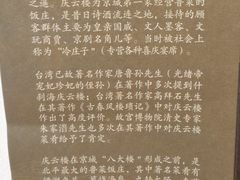 之。庆云楼为京城第一家经营鲁菜的
饭庄，是昔日诗酒流连之地，接待的顾
客群体主要为皇亲国戚、文人墨客、文
玩商贾、京剧名角儿等。当时被社会上
称为“冷庄子”（专营各种喜庆宴席）。
台湾已故著名作家唐鲁孙先生（光绪帝
宠妃珍妃的侄孙）在著作中多次提到什
刹海庆云楼；台湾著名作家高拜石先生
在其著作《古春风楼琐记》中对庆云楼
作出了高度评价。故宫博物院清史专家
朱家溍先生也多次在其著作中对庆云楼
菜肴给了肯定。
庆云楼在京城“八大楼”形成之前，是
北平最大的鲁菜饭庄，